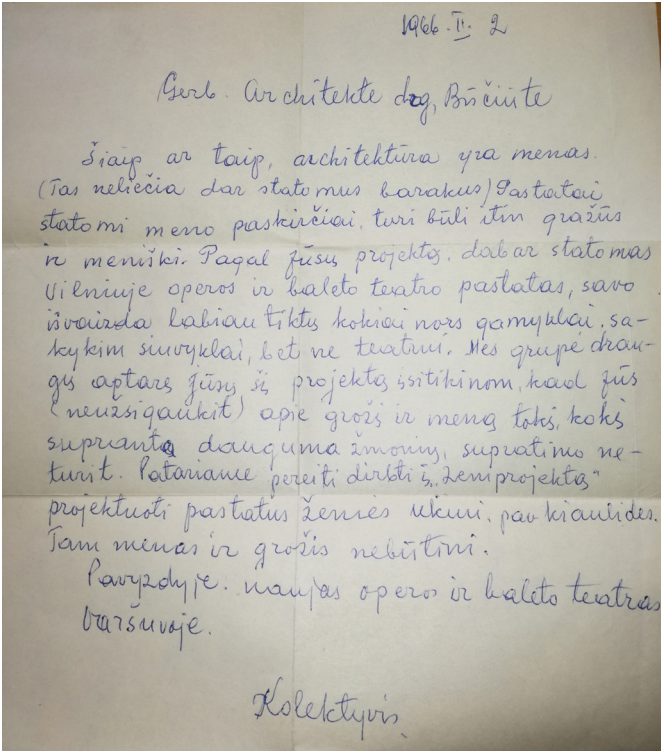 1966. II. 2
Gerb. Architekte drg, Būčiūte
Šiaip ar taip, architektūra yra menas.
(Tas neliečia dar statomus barakus) Pastatai
statomi meno paskirčiai, turi būti itin gražūs
ir meniški. Pagal Jūsų projektą, dabar statomas
Vilniuje operos ir baleto teatro pastatas, savo
išvaizda labiau tiktų kokiai nors gamyklai, sa-
kykim siuvyklai, bet ne teatrui. Mes grupė drau-
gų aptarę Jūsų šį projektą įsitikinom, kad Jūs
(neužsigaukit) apie grožį ir meną tokį, kokį
supranta dauguma žmonių, supratimo ne-
turit. Patariame pereiti dirbti į „Žemprojektą"
projektuoti pastatus žemės ūkiui, pav. kiaulides.
Tam menas ir grožis nebūtini.
Pavyzdyje: naujas operos ir baleto teatras
Varšuvoje.
Kolektyvis